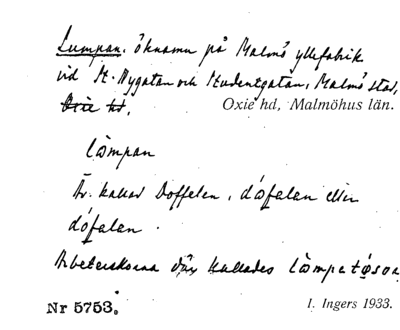 Lumpan. öknamn på Malmö yllefabrik
vid St. Nygatan och Studentgatan, Malmö stad,
Oxie hd. Oxie hd, Malmöhus län.
lömpan
Äv. kallad Doffelen, dófalan eller
dófalan.
Arbeterskorna där kallades
Nr 5753. I. Ingers 1933.